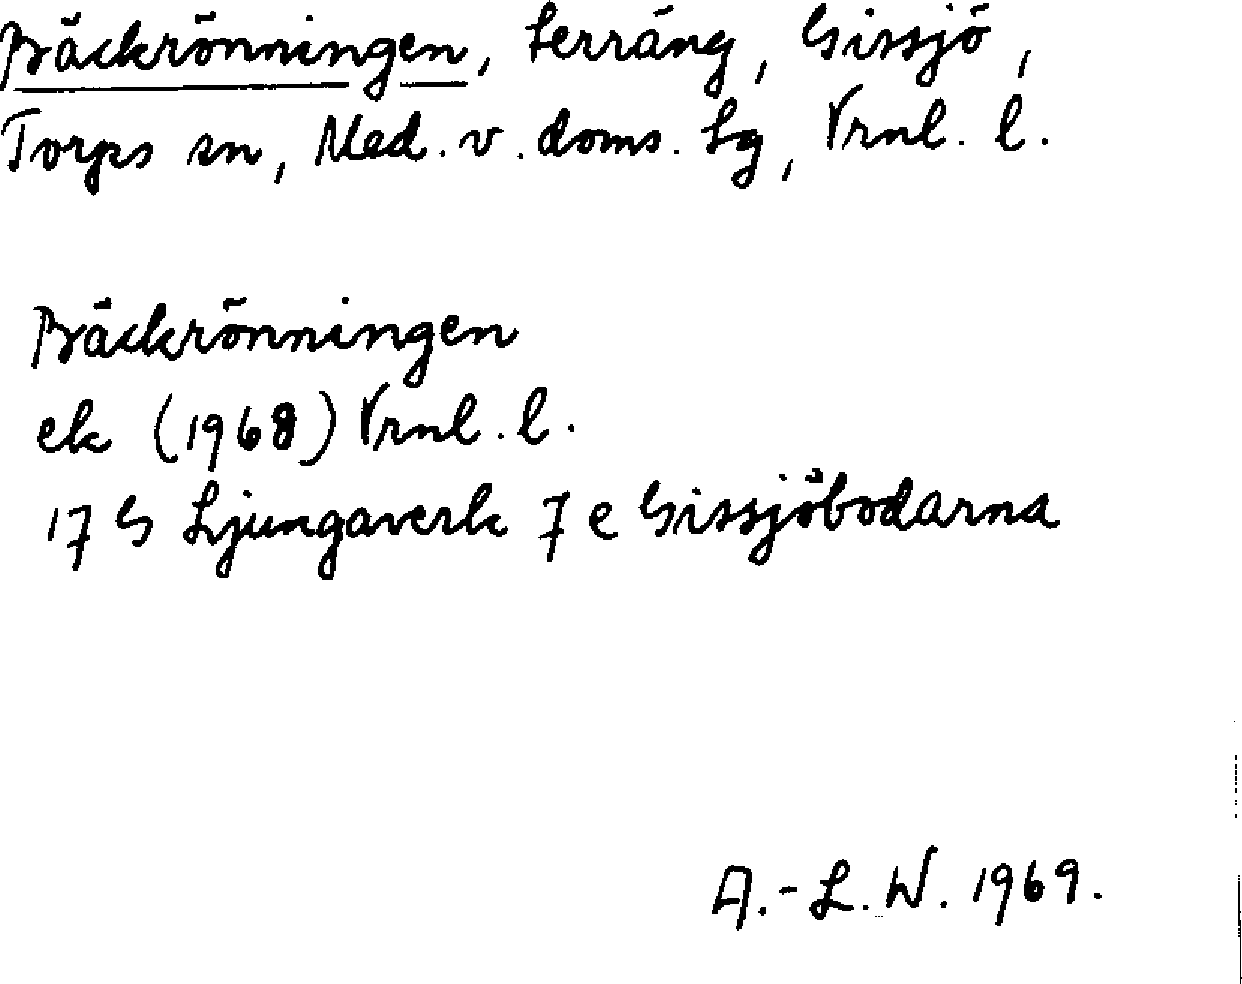 Bäckrönningen, terräng, Gissjö,
Torps sn, Med. v. doms. tg, Vrnl. l.
Bäckrönningen
ek (1968) Vrnl. l.
17 G Ljungaverk 7 e Gissjöbodarna
A.-L. W. 1969.